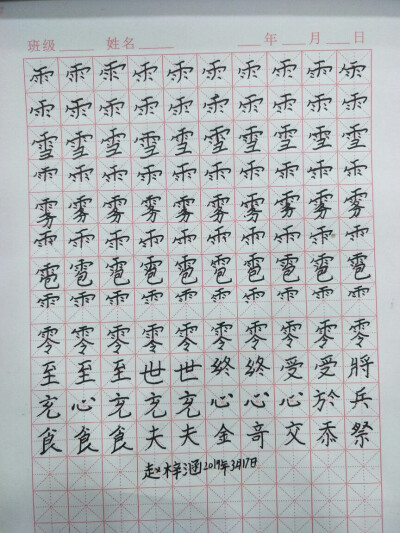 班级 姓名 年 月 日
雨雨雨雨雨雨雨雨雨雨
雨雨雨雨雨雨雨雨雨雨
雪雪雪雪雪雪雪雪雪雪
雨雨雨雨雨雨雨雨雨雨
雾雾雾雾雾雾雾雾雾雾
雨雨雨雨雨雨雨雨雨雨
雹雹雹雹雹雹雹雹雹雹
雨雨雨雨雨雨雨雨雨雨
零零零零零零零零零零
至至至世世終終受受將
充心充充充心心心於兵
食食食夫夫金奇交忝祭
赵梓涵2019年3月17日